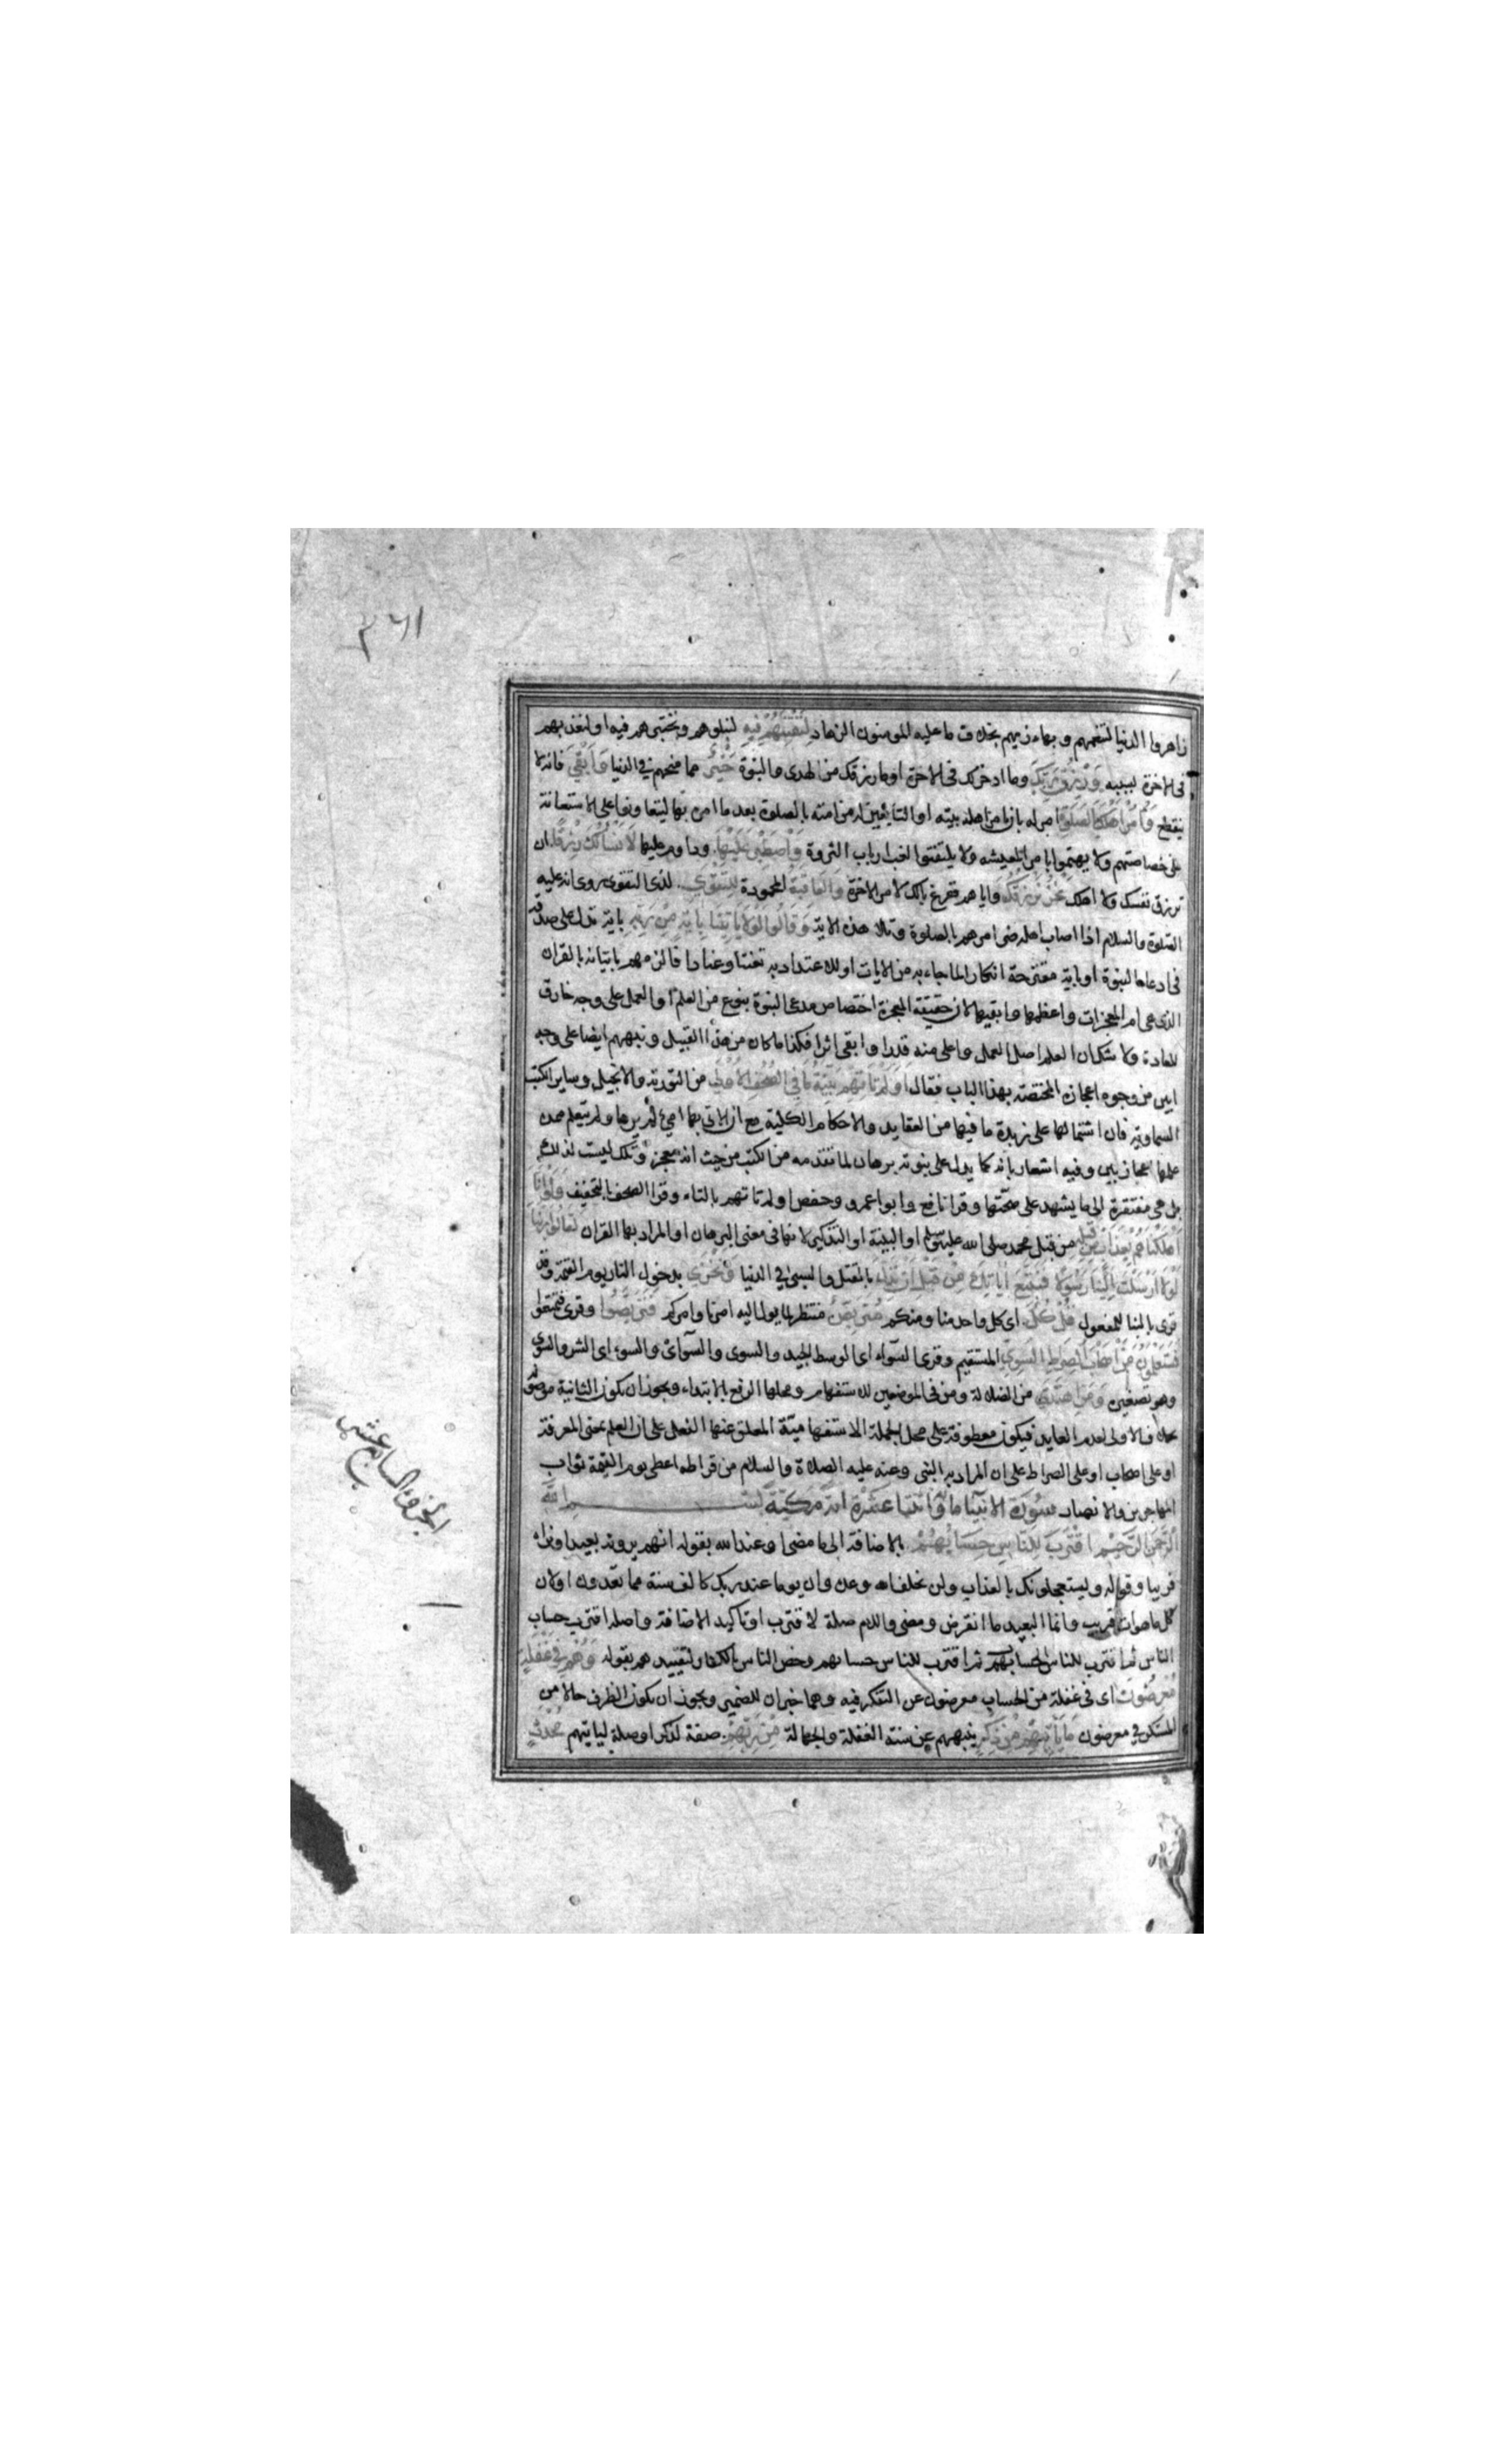 ٣٦١
زاهروا الدنيا لتنعمهم وبهاء زيهم بخلاف ما عليه المومنون الزهاد لنفتنهم فيه لنبلوهم ونختبرهم فيه او لنعذبهم
فى الاخرة بسببه ورزق ربك وما ادخر لك فى الاخرة او ما رزقك من الهدى والنبوة خير مما منحهم فى الدنيا وابقى فانه لا
ينقطع وأمر اهلك بالصلوة امره بان يامر اهل بيته او التابعين له من امته بالصلوة بعد ما امر بها ليتعاونوا على الاستعانة
على خصاصتهم ولا يهتموا بامر المعيشه ولا يلتفتوا لفت ارباب الثروة واصطبر عليها وداوم عليها لا نسألك رزقا ان
ترزق نفسك ولا اهلك نحن نرزقك واياهم ففرغ بالك لامر الاخرة والعاقبة المحمودة للتقوى لذى التقوى روى انه عليه
الصلوة والسلام اذا اصاب اهله ضر امرهم بالصلوة وتلا هذه الاية وقالوا لولا ياتينا باية من ربه باية تدل على صدقه
فى ادعاء النبوة او باية مقترحة انكارا لما جاء به من الايات او للاعتداد به تعنتا وعنادا فالزمهم باتيانه بالقران
الذى هى ام المعجزات واعظمها وابقيها لان حقيقة المعجزة اختصاص مدعى النبوة بنوع من العلم او العمل على وجه خارق
للعادة ولا شك ان العلم اصل العمل واعلى منه قدرا وابقى اثرا فكذا ما كان من هذا القبيل ونبههم ايضا على وجه
ابين من وجوه اعجازه المختصة بهذا الباب فقال اولم تاتهم بينة ما فى الصحف الاولى من التورية والانجيل وساير الكتب
السماوية فان اشتمالها على زبدة ما فيها من العقايد والاحكام الكلية مع ان الاتى بها امى لم يرها ولم يتعلم ممن
علمها اعجاز بين وفيه اشعار بانه كما يدل على نبوته برهان لما تقدمه من الكتب من حيث انه معجز وتلك ليست كذلك
بل هى مفتقرة الى ما يشهد على صحتها وقرا نافع وابو عمرو وحفص اولم تاتهم بالتاء وقرا الصحف بالتخفيف ولو انا
اهلكناهم بعذاب من قبله من قبل محمد صلى الله عليه وسلم او البينة او التذكير لانها فى معنى البرهان او المراد بها القران لقالوا ربنا
لولا ارسلت الينا رسولا فنتبع اياتك من قبل ان نذل بالقتل والسبى فى الدنيا ونخزى بدخول النار يوم القيمة وقد
قرى بالبنا للمفعول قل كل اى كل واحد منا ومنكم متربص منتظر لما يول اليه امرنا وامركم فتربصوا وقرى فتمتعوا
فستعلمون من اصحاب الصراط السوى المستقيم وقرى السواء اى الوسط الجيد والسوى والسوآى والسوء اى الشر والسوى
وهو تصغيره ومن اهتدى من الضلالة ومن فى الموضعين للاستفهام ومحلها الرفع بالابتداء ويجوز ان تكون الثانية موصولة
بخلاف الاولى لعدم العايد فيكون معطوفة على محل الجملة الاستفهامية المعلق عنها الفعل على ان العلم بمعنى المعرفة
او على اصحاب او على الصراط على ان المراد به النبى وعنه عليه الصلاة والسلام من قرا طه اعطى يوم القيمة ثواب
المهاجرين والانصار سورة الانبياء مائة واثنتا عشرة اية مكية بسم الله
الرحمن الرحيم اقترب للناس حسابهم بالاضافة الى ما مضى او عند الله بقوله انهم يرونه بعيدا ونراه
قريبا وقوله ويستعجلونك بالعذاب ولن يخلف الله وعده وان يوما عند ربك كالف سنة مما تعدون او لان
كل ما هوات قريب وانما البعيد ما انقرض ومضى واللام صلة لاقترب او تاكيد الاضافة واصله اقترب حساب
الناس ثم اقترب للناس الحساب ثم اقترب للناس حسابهم وخص الناس بالكفار لتقييدهم بقوله وهم فى غفلة
معرضون اى فى غفلة من الحساب معرضون عن التفكر فيه وهما خبران للضمير ويجوز ان يكون الظرف حالا من
المستكن فى معرضون ما يأتيهم من ذكر ينبههم عن سنة الغفلة والجهالة من ربهم صفة لذكر او صلة لياتيهم محدث
الجزء السابع عشر